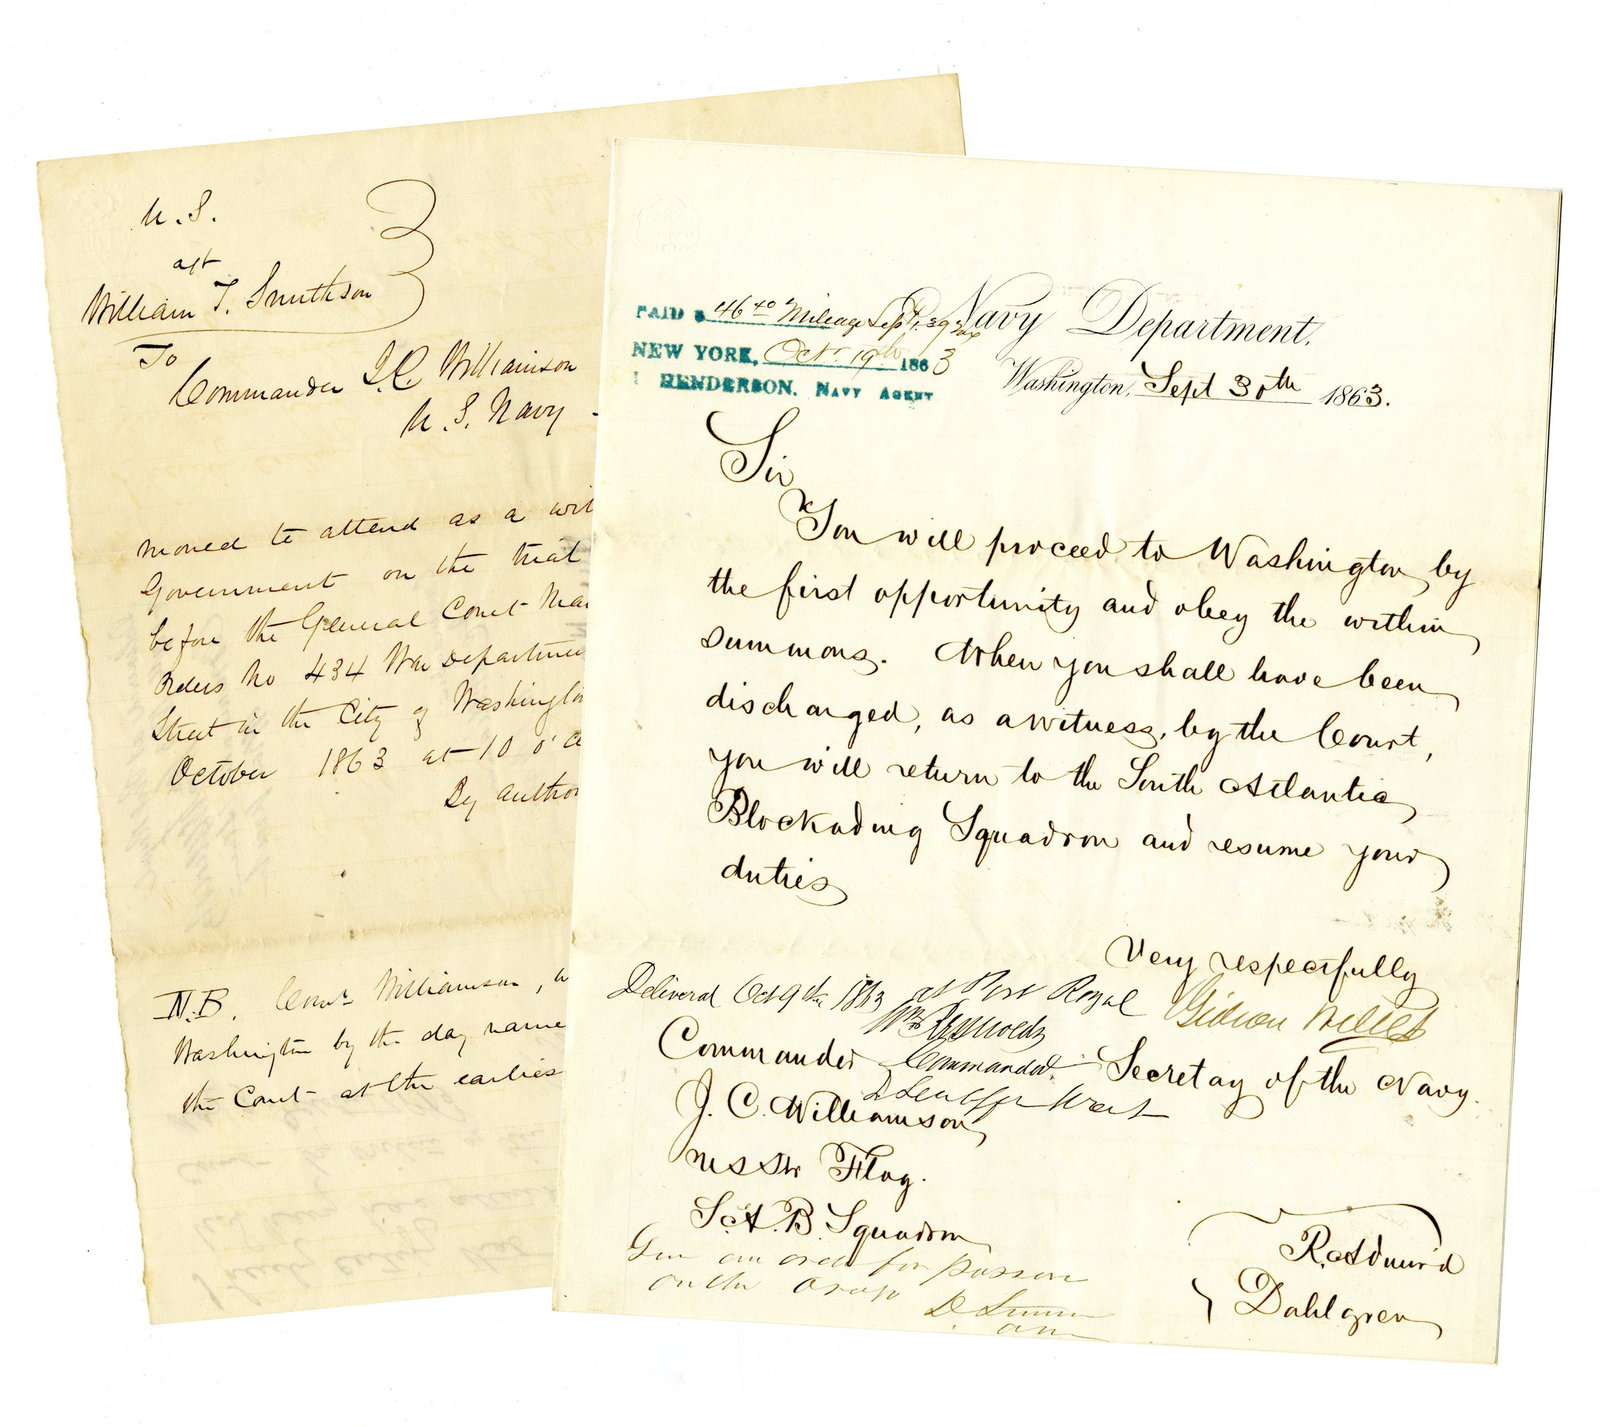 U. S.
agt
William T. Smithson
To
Commander J. C. Williamson
U. S. Navy
moned to attend as a wit
Government on the trial
before the General Court Mar
Orders No 434 War Departmen
Street in the City of Washington
October 1863 at 10 o'cl
By author
N.B. Comr Williamson, w
Washington by the day name
the Court at the earlies
PAID $ 46 40 Mileage Sept. 
NEW YORK, Oct. 19th 1863
HENDERSON, NAVY AGENT
Navy Department,
Washington, Sept 30th 1863.
Sir
You will proceed to Washington by
the first opportunity and obey the within
summons. When you shall have been
discharged, as a witness, by the Court,
you will return to the South Atlantic
Blockading Squadron and resume your
duties
Very respectfully
Gideon Welles
Secretay of the Navy.
Delivered Oct 9th 1863 at Port Royal
Wm Reynolds
Commander
Commander
J. C. Williamson
USStr Flag.
S. A. B. Squadron
an order for
on the
R. Admird
Dahlgren